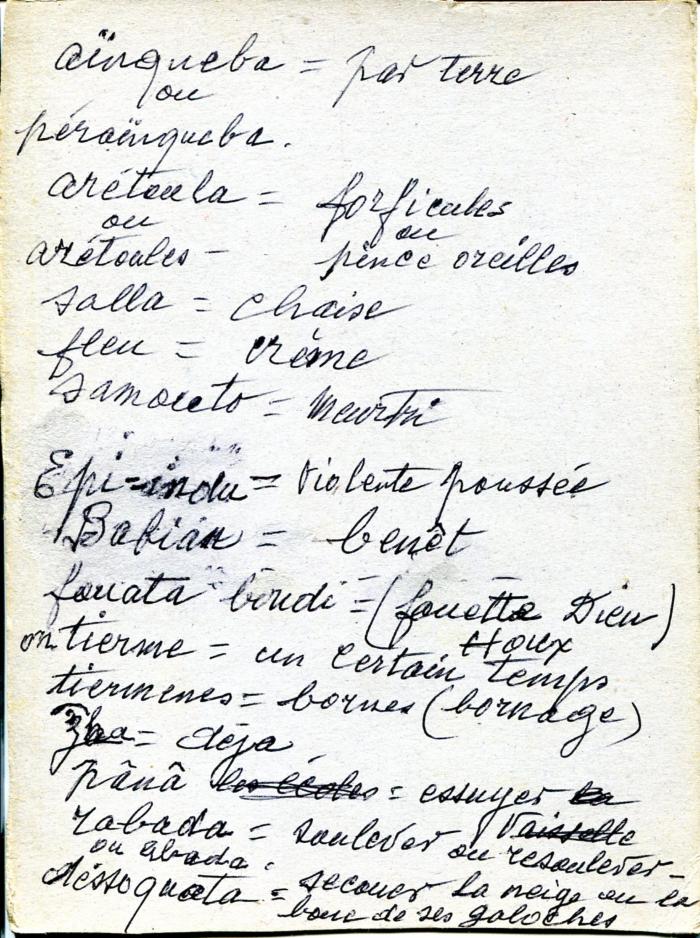 aïnqueba = par terre
ou
péraïnqueba.
arétoula = forficules
ou ou
arétoules - pince oreilles
salla = chaise
fleu = crème
samouto = meurtri
Epi-indu = Violente poussée
Babian = benêt
fouata boudi = (fouette Dieu)
Houx
on tierme = un certain temps
tiermenes = bornes (bornage)
= déja
pânâ les écoles = essuyer la
vaisselle
rabada = soulever ou resoulever -
ou abada.
dessoquata = secouer la neige ou la
boue de ses galoches